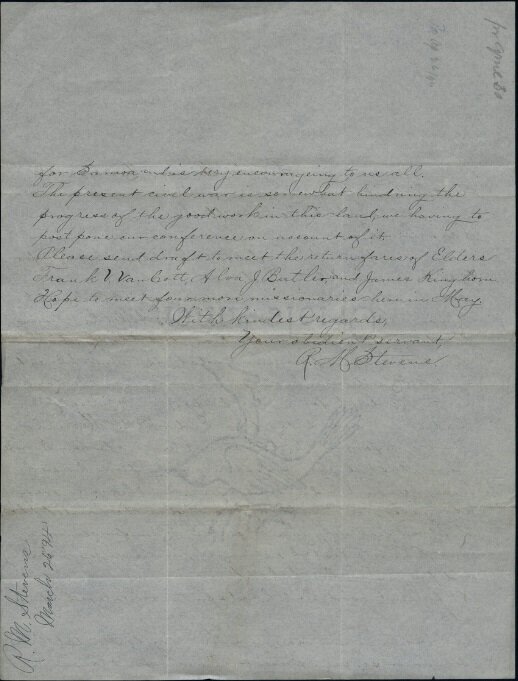 for Samoa and is very encouraging to us all.
The present civil war is somewhat hindring the
progress of the good work in this land, we having to
post pone our conference on account of it.
Please send draft to meet the return fares of Elders
Frank V. Van Cott, Alva J. Butler, and James Kinghorn
Hope to meet four more missionaries here in May
With kindest regards,
Your obidient servant,
R. M. Stevens
R. M. Stevens
March 28 94